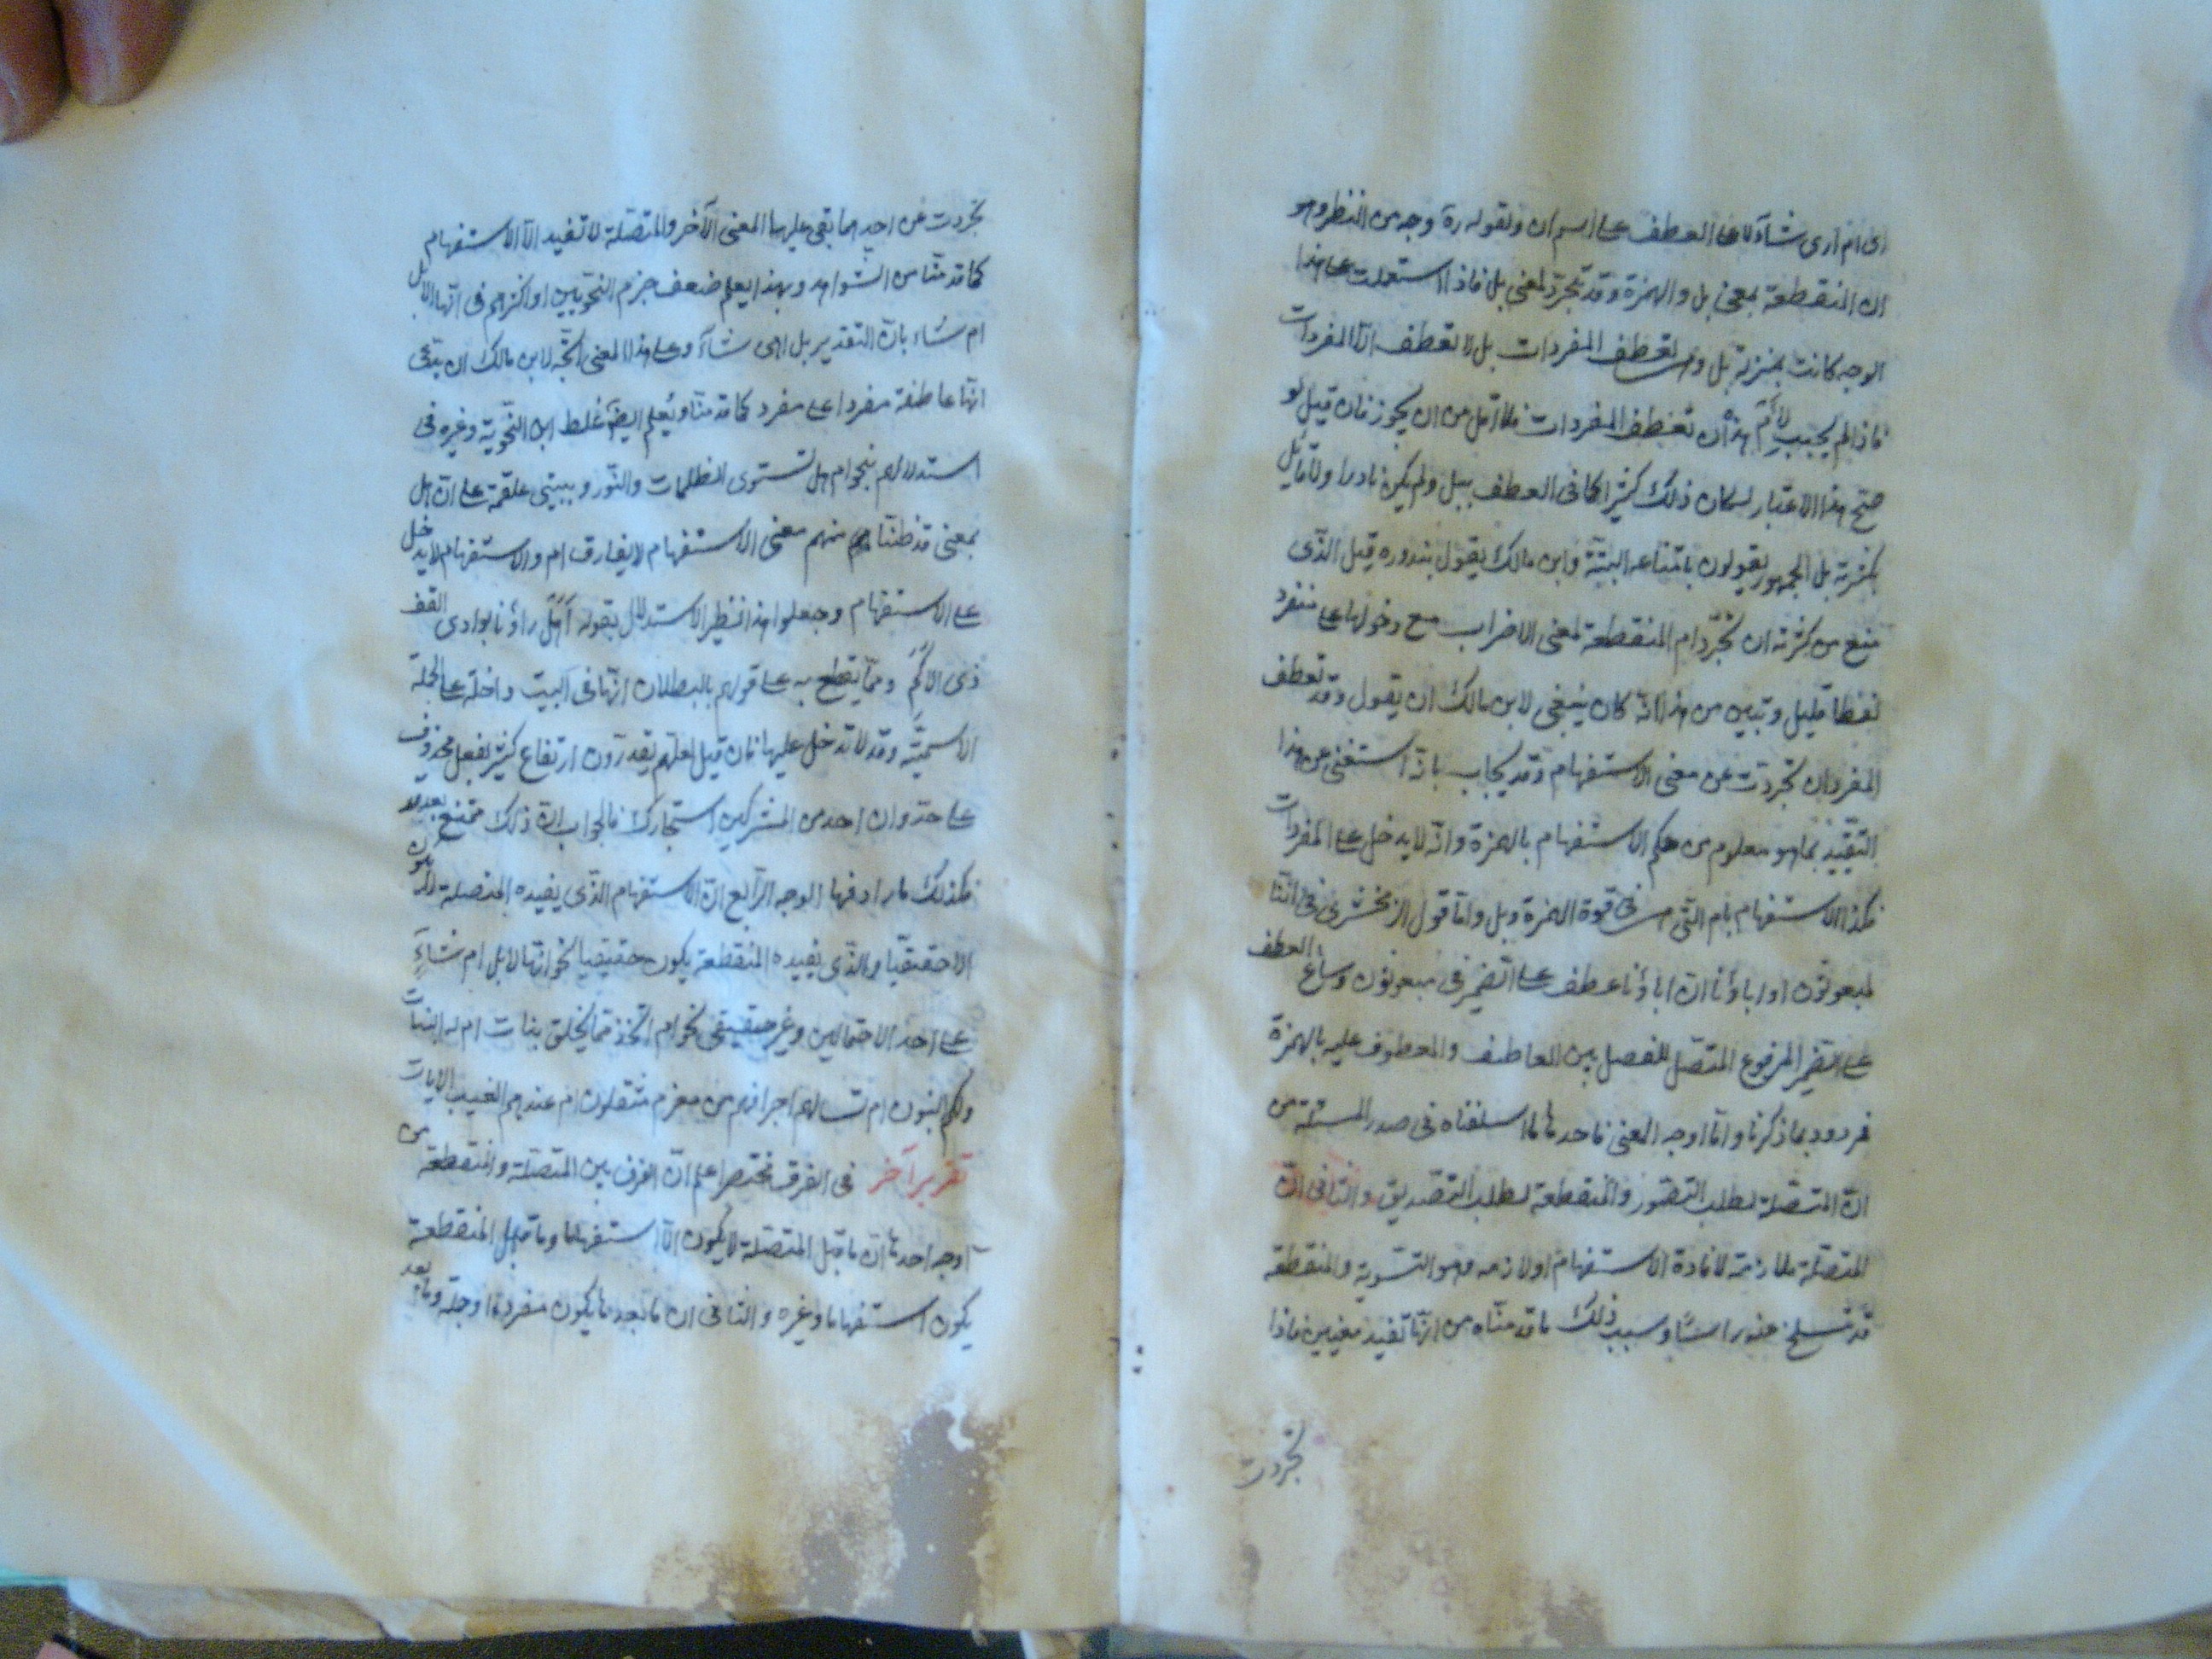 ای ام اری شآء لا علی العطف علی اسم ان ولقوله ره وجه من النظر وهو
ان المنقطعة بمعنی بل والهمزة وقد تجرّد لمعنی بل فاذا استعملت علی هذا
الوجه کانت بمنزلة بل وهی تعطف المفردات بل لا تعطف الّا المفردات
فاذا لم یجب لأَمْ هذه ان تعطف المفردات فلا اقل من ان یجوز فان قیل لو
صحّ هذا الاعتبار لکان ذلک کثیرا کما فی العطف ببل ولم یکن نادرا ولا قایل
بکثرته بل الجمهور یقولون بامتناعه البتّة وابن مالک یقول بندوره قیل الّذی
منع من کثرته ان تجرّد ام المنقطعة لمعنی الاضراب مع دخولها علی مفرد
لفظا قلیل وتبین من هذا انّه کان ینبغی لابن مالک ان یقول وقد تعطف
المفرد ان تجرّدت عن معنی الاستفهام وقد یجاب بانّه استغنی عن هذا
التقیید بما هو معلوم من حکم الاستفهام بالهمزة وانّه لا یدخل علی المفردات
فکذا الاستفهام بام الّتی هی فی قوة الهمزة وبل وامّا قول الزمخشری فی ائنّا
لمبعوثون اوا باؤنا انّ اباؤنا عطف علی الضّمیر فی مبعوثون وساغ العطف
علی الضّمیر المرفوع المتّصل للفصل بین العاطف والمعطوف علیه بالهمزة
فردود بما ذکرنا وامّا اوجه المعنی فاحدها ما اسلفناه فی صدر المسئلة من
انّ المتّصلة لطلب التصّور والمنقطعة لطلب التصّدیق والثانی انّ
المتصّلة ملازمة لافادة الاستفهام او لازمه وهو التسّویة والمنقطعة
قد تسلخ عنه راسًا وسبب ذلک ما قدمنّاه من انّها تفید معنیین فاذا
تجردت
تجردت عن احدهما بقی علیها المعنی الآخر والمتصّلة لا تفید الّا الاستفهام
کما قدمنّا من الشّواهد وبهذا یعلم ضعف جزم النحّویین او اکثرهم فی انّها لابل
ام شاء بانّ التقدیر بل اهی شآء وعلی هذا المعنی اتّجه لابن مالک ان یدّعی
انّها عاطفة مفردا علی مفرد کما قدمنّا ویُعلم ایضآ غلط ابن النحّویّة وغیره فی
استدلالهم بنحو ام هل تستوی الظلمات والنّور وببیتی علقمة علی انّ هل
بمعنی قد ظنّا منهم معنی الاستفهام لا یفارق ام والاستفهام لا یدخل
علی الاستفهام وجعلوا هذا نظیر الاستدلال بقوله أَهَلْ رأونا بوادی القف
ذی الاکَم وممّا یقطع به علی قولهم بالبطلان انّها فی البیت داخلة علی الجملة
الاسمیّة وقد لا تدخل علیها فان قیل لعلّهم یقدرّون ارتفاع کثیر بفعل محذوف
علی حدّ وان احد من المشرکین استجارک فالجواب انّ ذلک ممتنع بعد هل
فکذلک مارادفها الوجه الرّابع انّ الاستفهام الذّی یفیده المتصلة لا یکون
الا حقیقیّا والذّی یفیده المنقطعة یکون حقیقیا نحو انّها لابل ام شآءٌ
علی احد الاحتمالین وغیر حقیقی نحو ام اتّخذ ممّا یخلق بنات ام له البنات
ولکم البنون ام تسالهم اجرا فهم من مغرم مثقلون ام عندهم الغیب الایات
تقریر آخر فی الفرق مختصرا علم انّ الفرق بین المتصّلة والمنقطعة من
اوجه احدها انّ ما قبل المتصّلة لا یکون الّا استفهاما وما قبل المنقطعة
یکون استفهاما وغیره والثانی ان ما بعدها یکون مفردا وجملة وما بعد